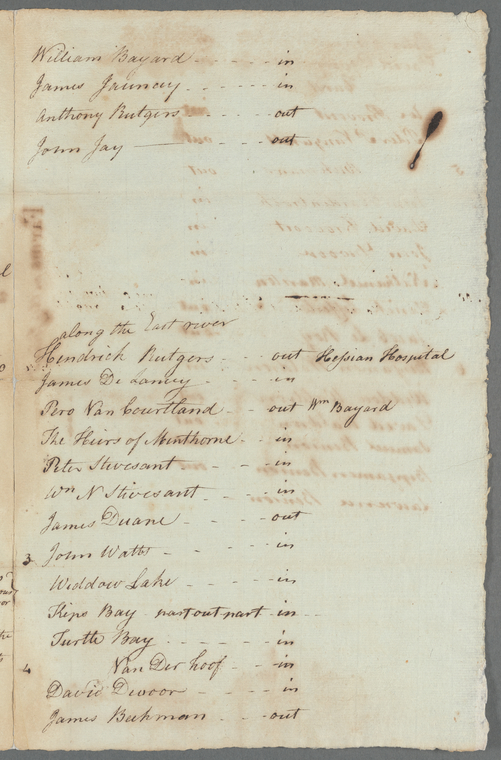 William Bayard - - - - - in
James Jauncey - - - - - in
Anthony Rutgers - - - - out
John Jay - - - out
along the East river
Hendrick Rutgers - - - out Hessian Hospital
James De Lancey - - - - in
Pero Van Courtland - - out Wm Bayard
The Heirs of Minthorne - - in
Peter Stivesant - - - - in
Wm N Stivesant - - - - in
James Duane - - - - out
3 John Watts - - - - in
Widdow Lake - - - - in
Kips Bay - part out part - in - -
Turtle Bay - - - - - in
4 Van Der hoof - - in
David Devoor - - - - in
James Beekman - - - - out